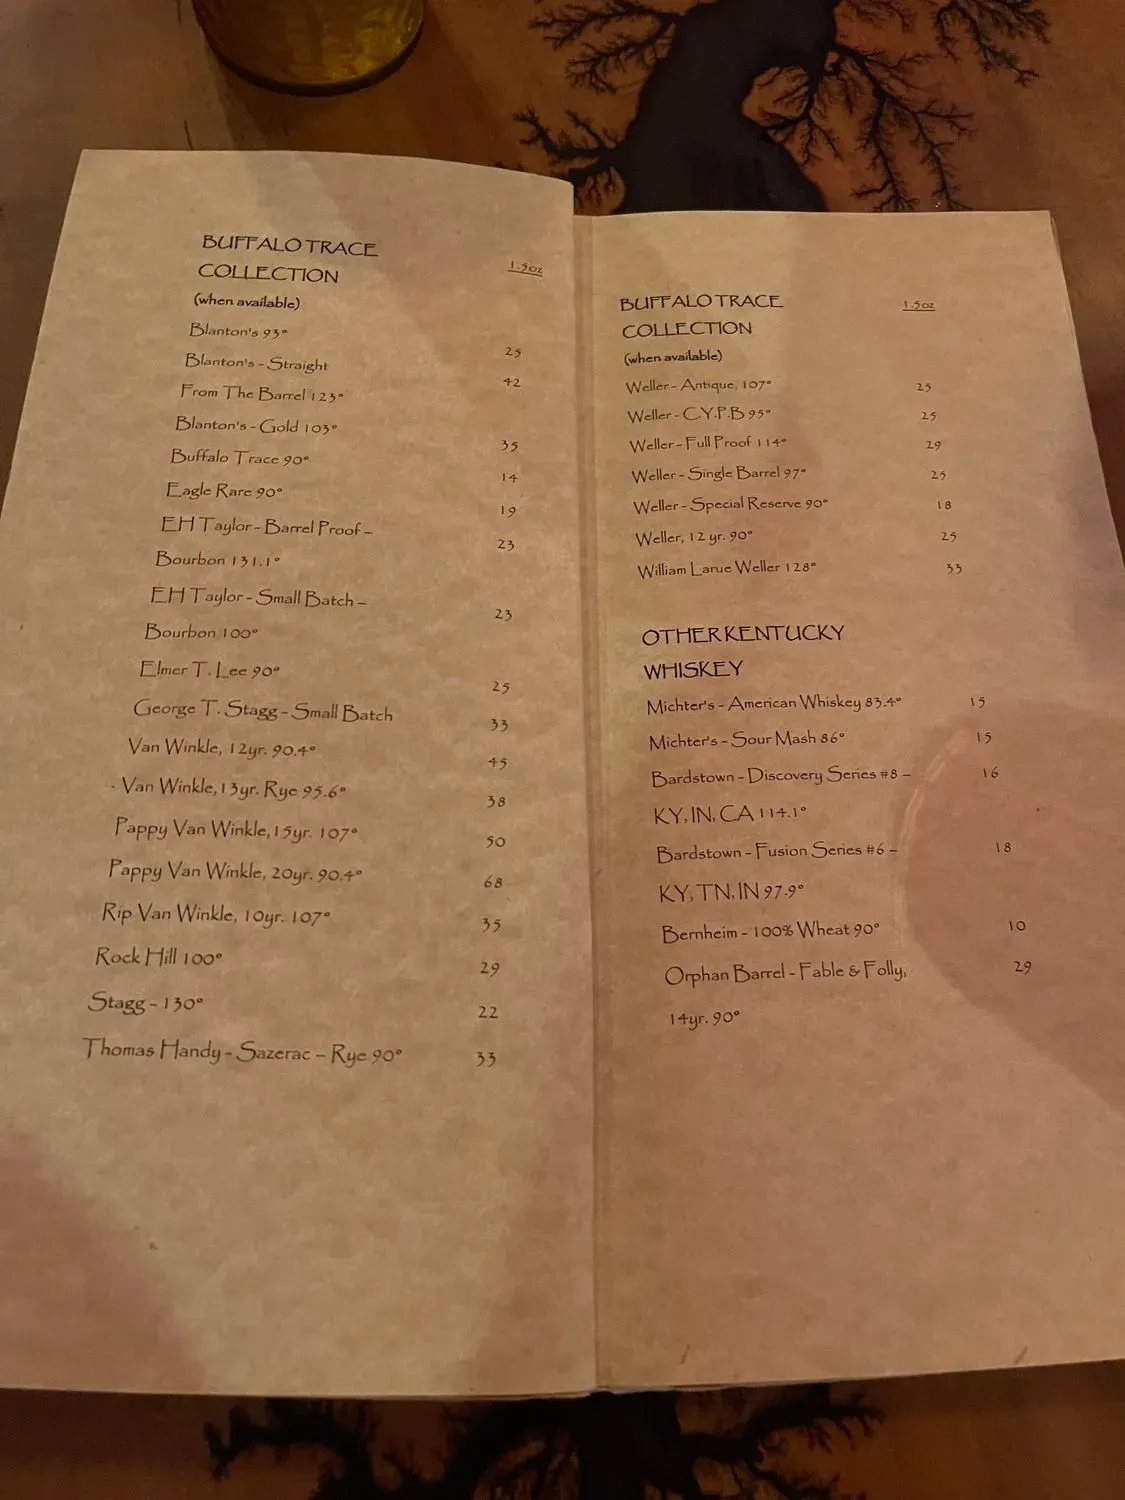 BUFFALO TRACE
COLLECTION 1.5oz
(when available)
Blanton's 93°
Blanton's - Straight 25
From The Barrel 123° 42
Blanton's - Gold 103°
Buffalo Trace 90° 35
Eagle Rare 90° 14
EH Taylor - Barrel Proof – 19
Bourbon 131.1° 23
EH Taylor - Small Batch –
Bourbon 100° 23
Elmer T. Lee 90°
George T. Stagg - Small Batch 25
Van Winkle, 12yr. 90.4° 33
Van Winkle, 13yr. Rye 95.6° 45
Pappy Van Winkle, 15yr. 107° 38
Pappy Van Winkle, 20yr. 90.4° 50
68
Rip Van Winkle, 10yr. 107° 35
Rock Hill 100° 29
Stagg - 130° 22
Thomas Handy - Sazerac – Rye 90° 33
BUFFALO TRACE 1.5oz
COLLECTION
(when available)
Weller - Antique, 107° 25
Weller - C.Y.P.B 95° 25
Weller - Full Proof 114° 29
Weller - Single Barrel 97° 25
Weller - Special Reserve 90° 18
Weller, 12 yr. 90° 25
William Larue Weller 128° 33
OTHER KENTUCKY
WHISKEY
Michter's - American Whiskey 83.4° 15
Michter's - Sour Mash 86° 15
Bardstown - Discovery Series #8 – 16
KY, IN, CA 114.1°
Bardstown - Fusion Series #6 – 18
KY, TN, IN 97.9°
Bernheim - 100% Wheat 90° 10
Orphan Barrel - Fable & Folly, 29
14yr. 90°